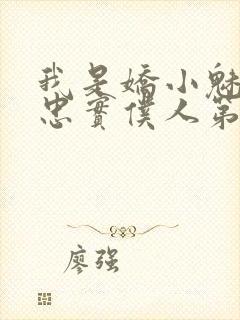 我是嬌小魅
忠實僕人第
廖强